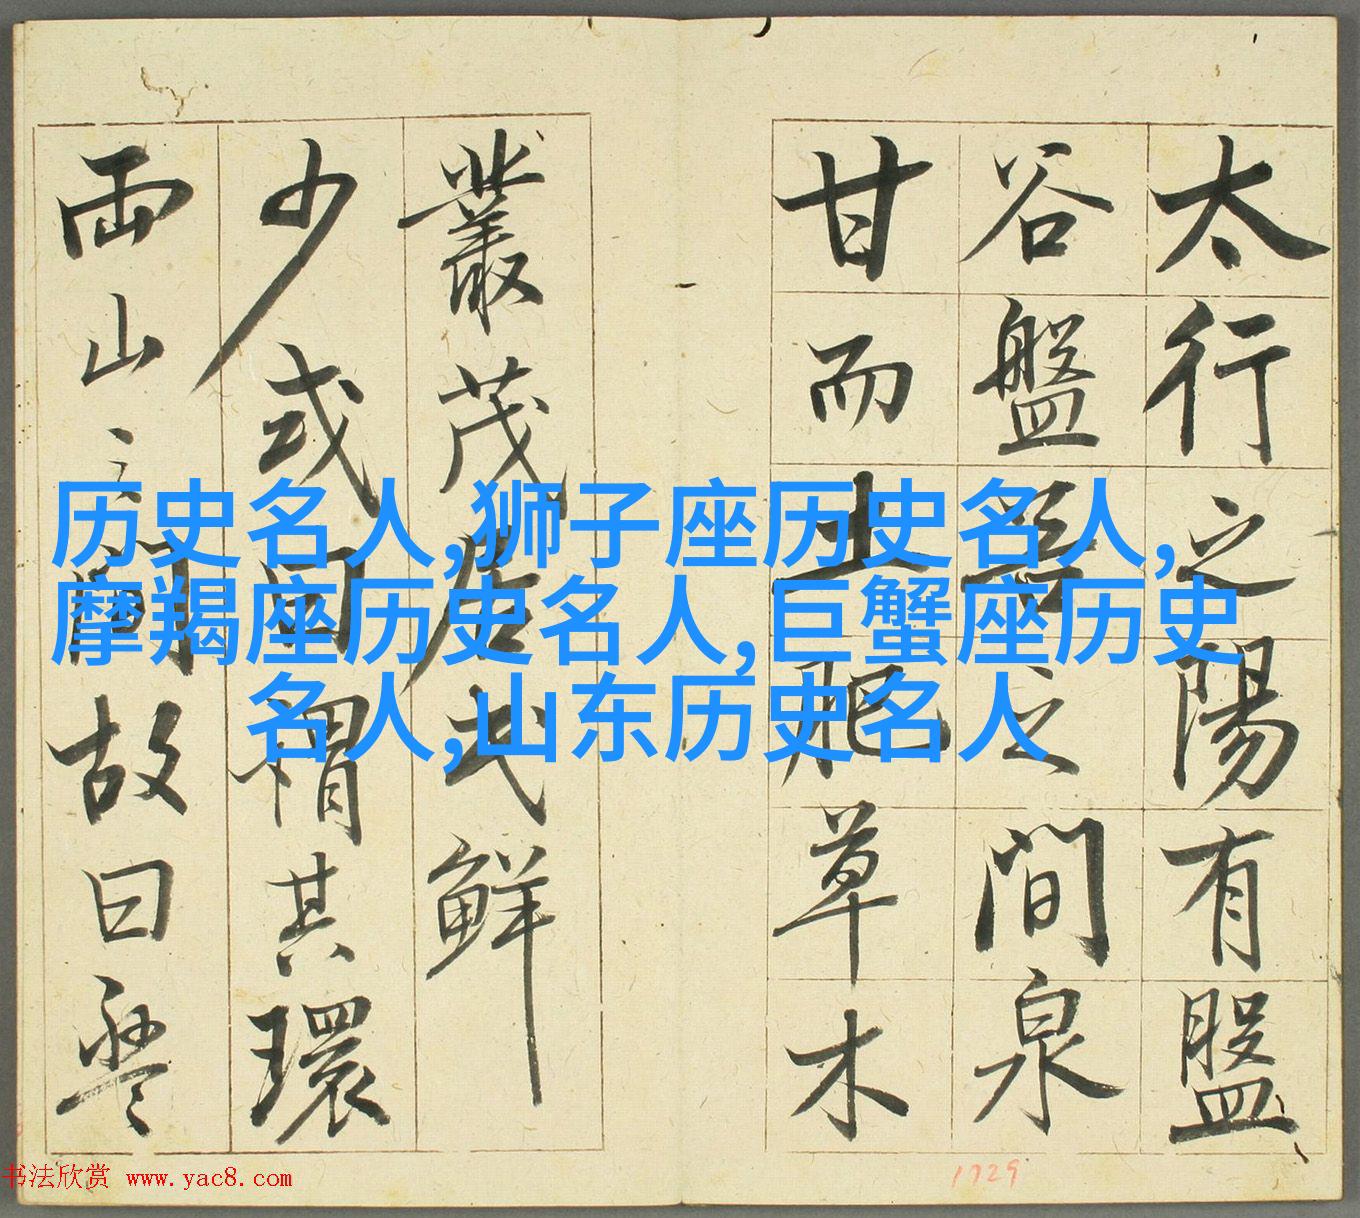 太行之陽有盤
谷盤谷之間泉
甘而土肥草木
叢茂居民鮮
少或曰謂其環
兩山之間故曰盤
历史名人,狮子座历史名人,
摩羯座历史名人,巨蟹座历史
名人,山东历史名人
书法欣赏 www.yac8.com
1729